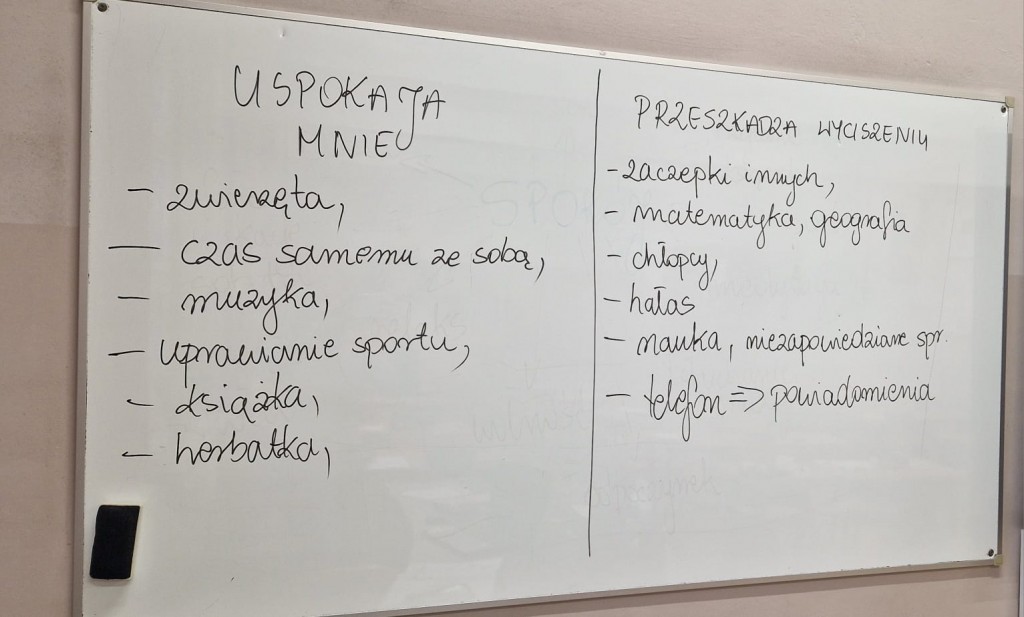 USPOKAJA
MNIE
- zwierzęta,
- czas samemu ze sobą,
- muzyka,
- uprawianie sportu,
- książka,
- herbatka,
PRZESZKADZA WYCISZENIU
- zaczepki innych,
- matematyka, geografia
- chłopcy,
- hałas
- nauka, niezapowiedziane spr.
- telefon => powiadomienia